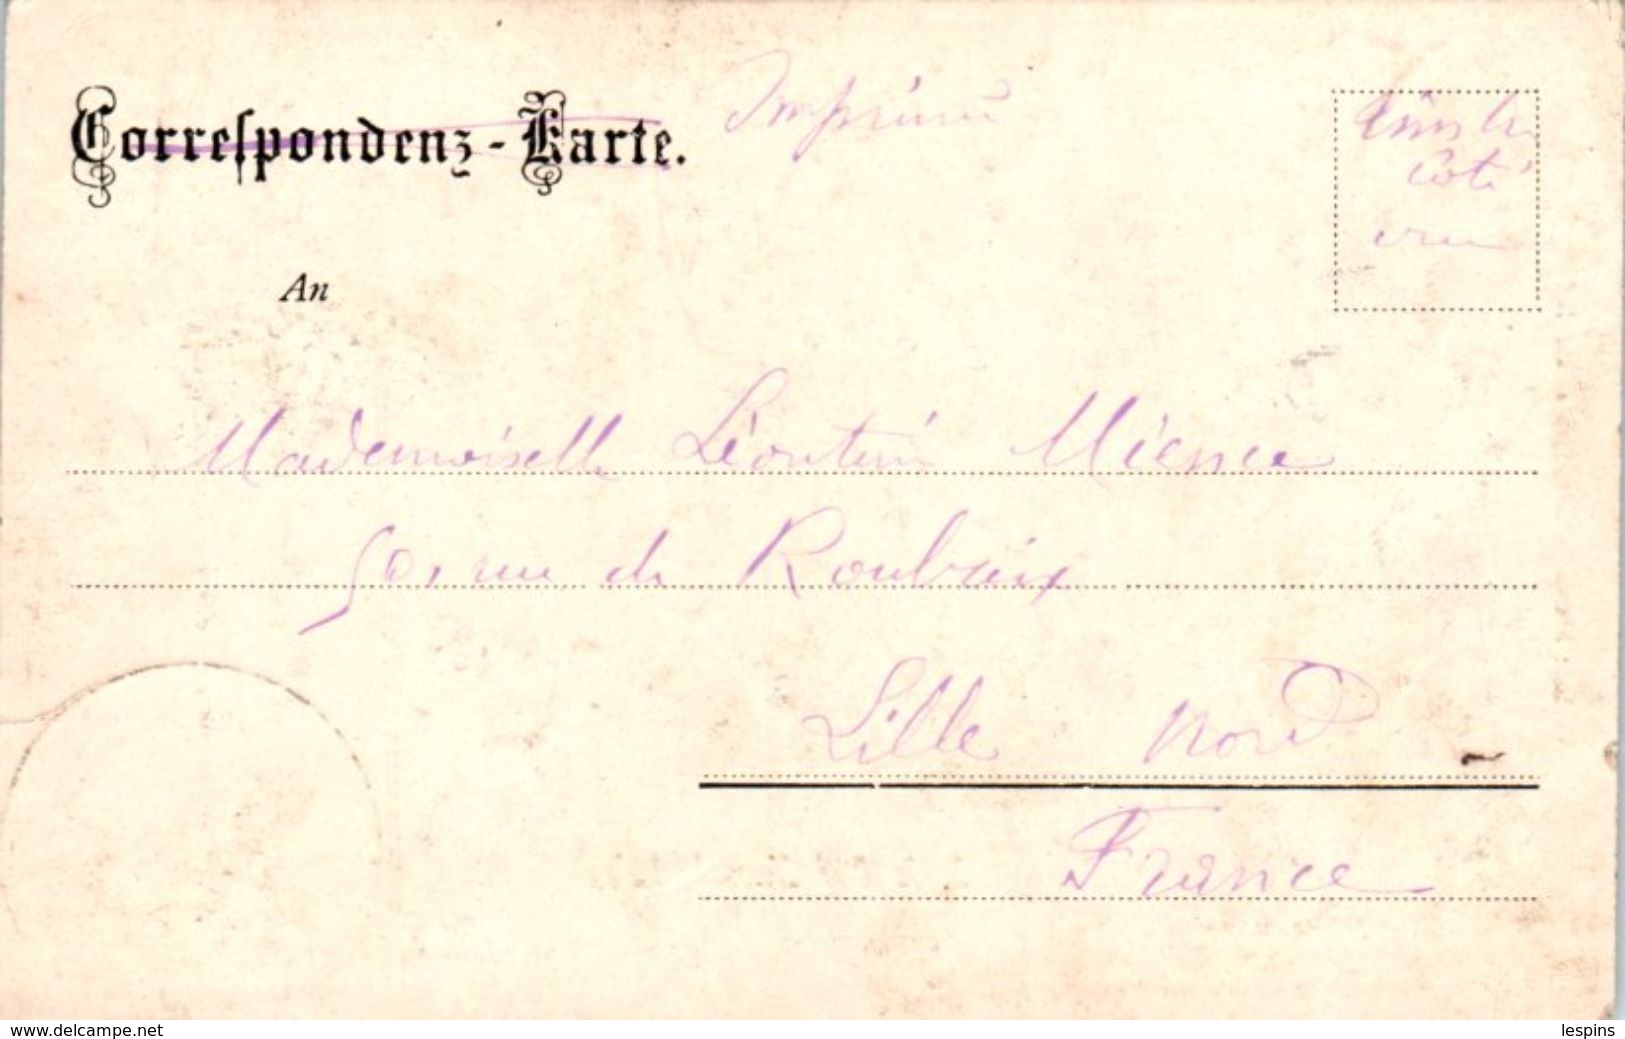 Correſpondenz-Karte.
Imprimé
Timbre
Coté
vue
An
Mademoiselle Léontine
50, rue de Roubaix
Lille Nord
France
www.delcampe.net
lespins